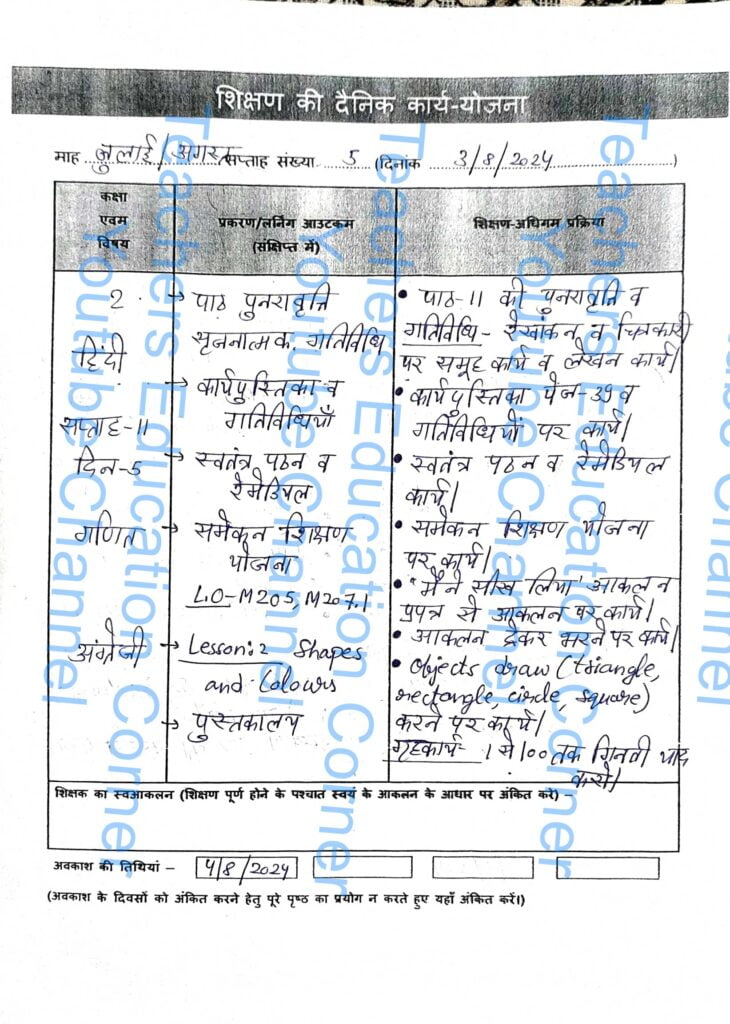 शिक्षण की दैनिक कार्य-योजना
माह जुलाई/अगस्त सप्ताह संख्या 5 (दिनांक 3/8/2024)
कक्षा
एवम
विषय
प्रकरण/लर्निंग आउटकम
(संक्षिप्त में)
शिक्षण-अधिगम प्रक्रिया
2
हिंदी
सप्ताह-11
दिन-5
→ पाठ पुनरावृत्ति
सृजनात्मक गतिविधि
→ कार्यपुस्तिका व
गतिविधियाँ
→ स्वतंत्र पठन व
रेमेडियल
• पाठ-11 की पुनरावृत्ति व
गतिविधि- रेखांकन व चित्रकारी
पर समूह कार्य व लेखन कार्य।
• कार्यपुस्तिका पेज-39 व
गतिविधियों पर कार्य।
• स्वतंत्र पठन व रेमेडियल
कार्य।
गणित
→ समेकन शिक्षण
योजना
L.O-M205, M207.1
• समेकन शिक्षण योजना
पर कार्य।
• "मैंने सीख लिया" आकलन
प्रपत्र से आकलन पर कार्य।
• आकलन ट्रैकर भरने पर कार्य।
अंग्रेजी
→ Lesson:2 Shapes
and Colours
→ पुस्तकालय
• Objects draw (triangle,
rectangle, circle, square)
करने पर कार्य।
गृहकार्य- 1 से 100 तक गिनती याद
करो।
शिक्षक का स्वआकलन (शिक्षण पूर्ण होने के पश्चात स्वयं के आकलन के आधार पर अंकित करें) –
अवकाश की तिथियां – 4/8/2024
(अवकाश के दिवसों को अंकित करने हेतु पूरे पृष्ठ का प्रयोग न करते हुए यहाँ अंकित करें।)
Teachers Education Corner
Youtube Channel
Teachers Education Corner
Youtube Channel
Teachers Education Corner
Youtube Channel